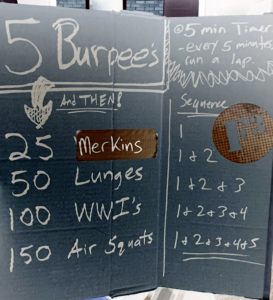 5 Burpee's
And THEN!
25 Merkins
50 Lunges
100 WWI's
150 Air Squats
@ 5 min Timer
- every 5 minutes
run a lap.
Sequence
1
1 & 2
1 & 2 & 3
1 & 2 & 3 & 4
1 & 2 & 3 & 4 & 5